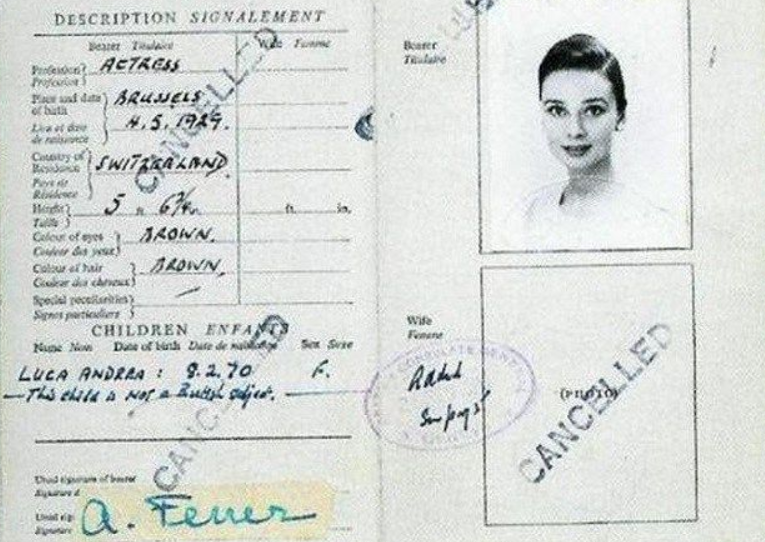 DESCRIPTION SIGNALEMENT
Bearer Titulaire Wife Femme
Profession Profession ACTRESS
Place and date of birth BRUSSELS
Lieu et date de naissance 4.5.1929.
Country of Residence SWITZERLAND
Pays de Résidence
Height Taille 5 ft 6 in. ft. in.
Colour of eyes Couleur des yeux BROWN.
Colour of hair Couleur des cheveux BROWN.
Special peculiarities
Signes particuliers
CHILDREN ENFANTS
Name Nom Date of birth Date de naissance Sex Sexe
LUCA ANDREA : 8.2.70 F.
This child is not a British subject.
Usual signature of bearer
Signature d
Usual sig
Signature
A. Ferrer
CANCELLED
CANCELLED
Bearer
Titulaire
Wife
Femme
(PHOTO)
CANCELLED